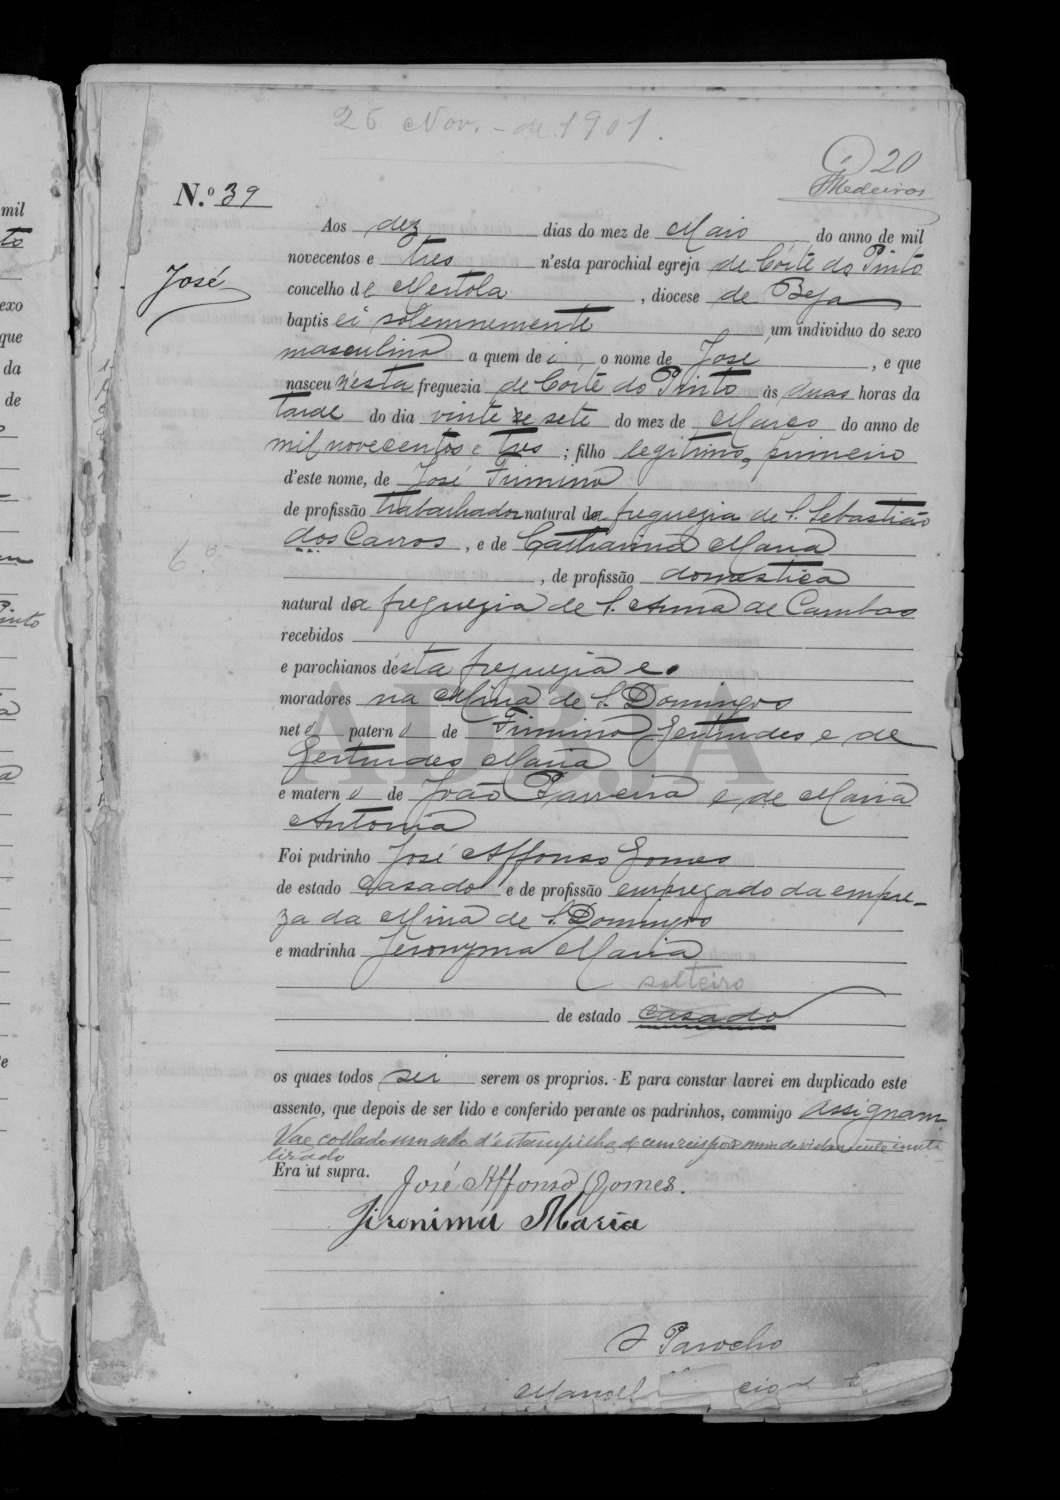 26 Nov. - de 1901.
20
Medeiros
N.º 39
José
Aos dez dias do mez de Maio do anno de mil
novecentos e tres n'esta parochial egreja de Córte do Pinto
concelho de Mertola, diocese de Beja
baptisei solemnemente um individuo do sexo
masculino a quem dei o nome de José, e que
nasceu n'esta freguezia de Córte do Pinto às duas horas da
tarde do dia vinte e sete do mez de Março do anno de
mil novecentos e tres; filho legitimo, primeiro
d'este nome, de José Firmino
de profissão trabalhador natural da freguezia de S. Sebastião
dos Carros, e de Catharina Maria
, de profissão domestica
natural da freguezia de S. Anna de Cambas
recebidos
e parochianos désta freguezia e
moradores na Mina de S. Domingos
neto paterno de Firmino Gertrudes e de
Gertrudes Maria
e materno de João Parreira e de Maria
Antonia
Foi padrinho José Affonso Gomes
de estado casado e de profissão empregado da empre-
za da Mina de S. Domingos
e madrinha Jeronyma Maria
solteiro
de estado casado
os quaes todos sei serem os proprios. E para constar lavrei em duplicado este
assento, que depois de ser lido e conferido perante os padrinhos, commigo assignam
Vae collado um sello d'estampilha de cem reis devidamente inuti
lizado
Era ut supra.
José Affonso Gomes.
Jironima Maria
O Parocho
Manoel
mil
to
sexo
que
da
de
Pinto
ADBJA